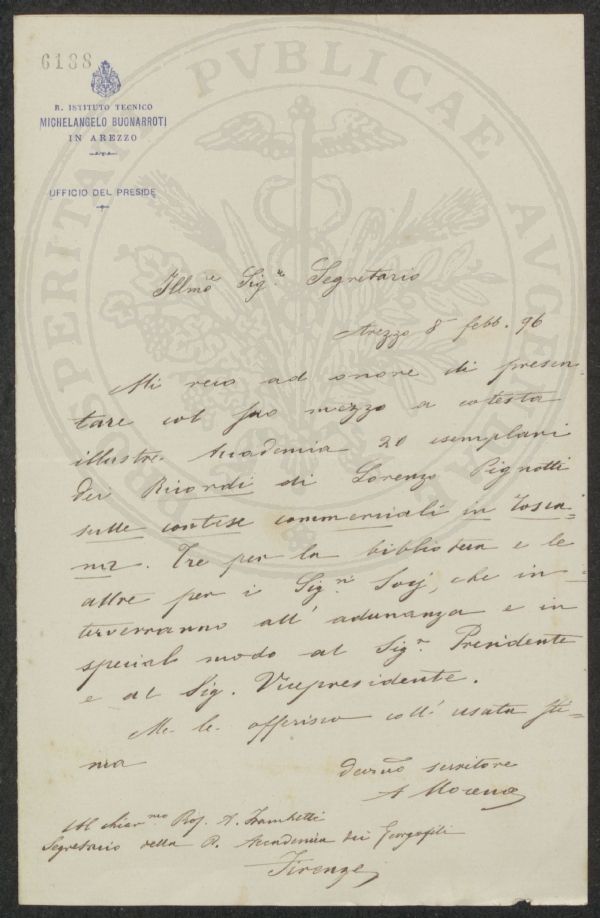 6188
R. ISTITUTO TECNICO
MICHELANGELO BUONARROTI
IN AREZZO
UFFICIO DEL PRESIDE
PROSPERITATI PVBLICAE AVGE
Illmo Sigre Segretario
Arezzo 8 febb. 96
Mi reco ad onore di presen-
tare col suo mezzo a cotesta
illustre Accademia 20 esemplari
dei Ricordi di Lorenzo Pignotti
sulle contese commerciali in Tosca-
na. Tre per la biblioteca e le
altre per i Sigri Socj, che in-
terverranno all' adunanza e in
special modo al Sigr. Presidente
e al Sig. Vicepresidente.
Me le offerisco coll' usata sti-
ma
servitore
Al chiarmo Prof. A.
Segretario della R. Accademia dei Georgofili
Firenze